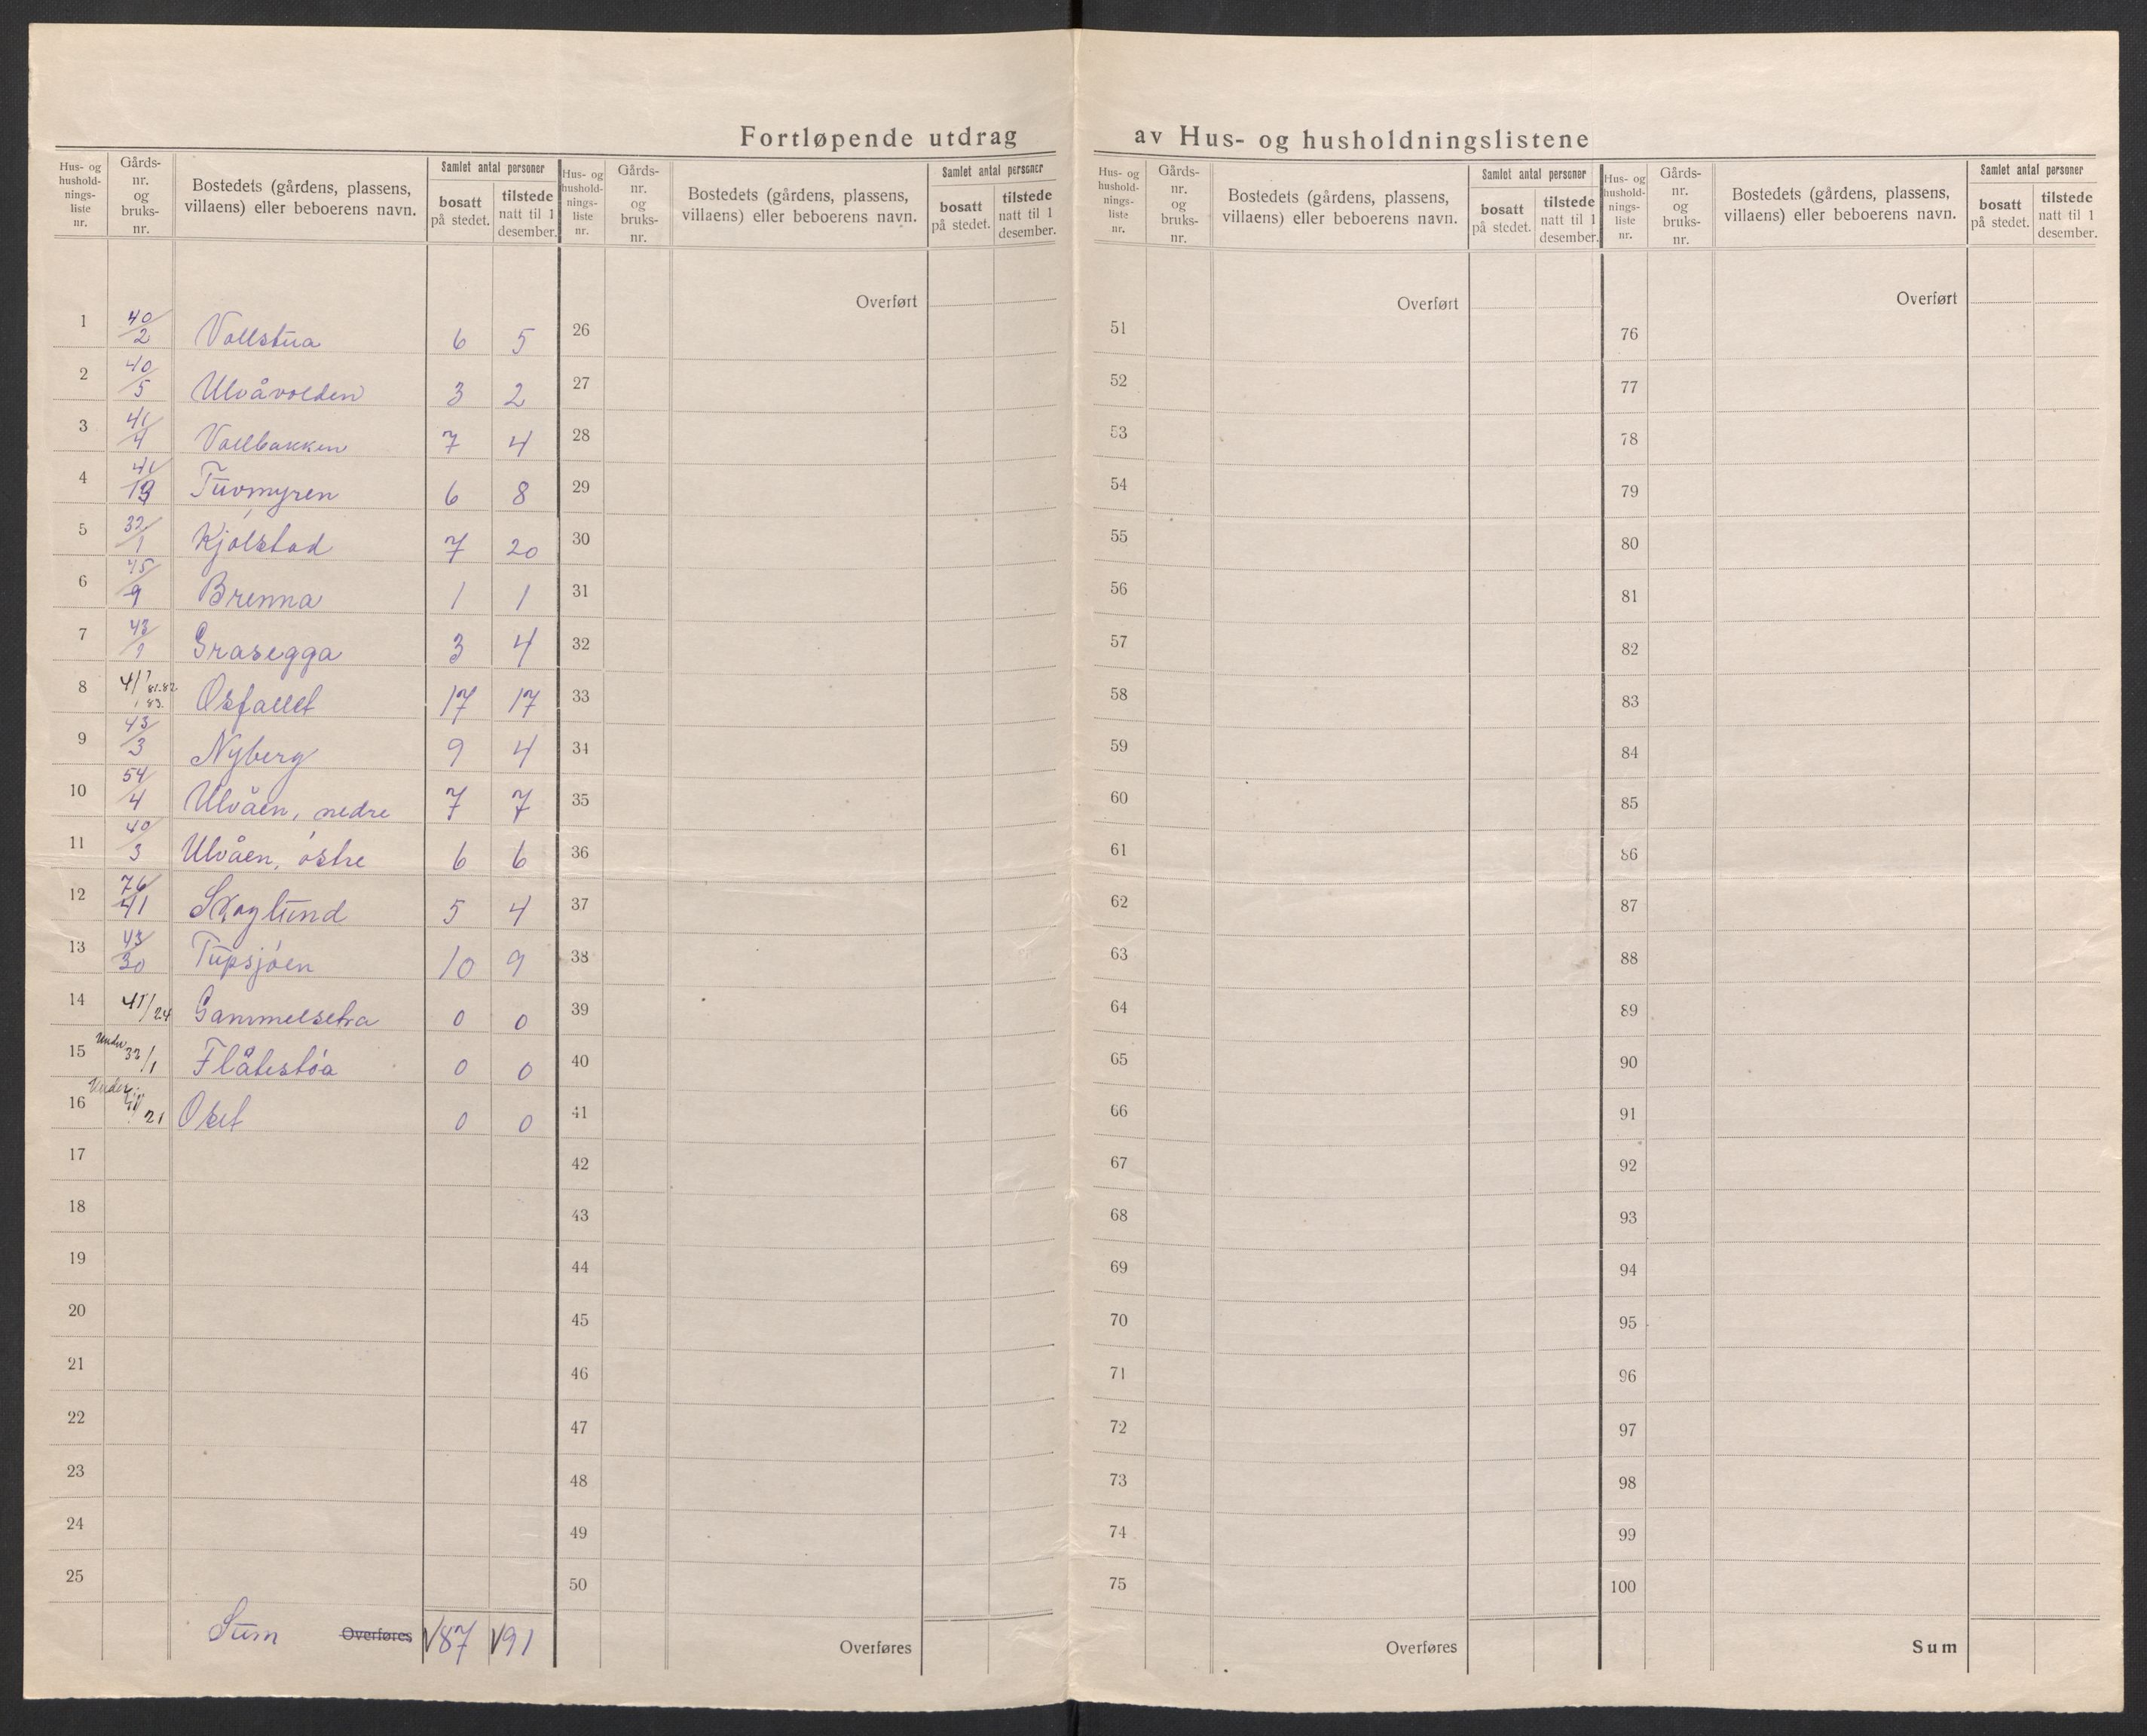 Fortløpende utdrag av Hus- og husholdningslistene
Hus- og husholdnings-liste nr. | Gårds-nr. og bruks-nr. | Bostedets (gårdens, plassens, villaens) eller beboerens navn. | Samlet antal personer | bosatt på stedet. | tilstede natt til 1 desember.
1 40/2 Vollstua 6 5
2 40/5 Ulvåvolden 3 2
3 41/4 Vollbakken 7 4
4 41/19 Tuvmyren 6 8
5 32/1 Kjølstad 7 20
6 45/9 Brenna 1 1
7 43/1 Grasegga 3 4
8 41/ 81.82 83. Osfallet 17 17
9 43/3 Nyberg 9 4
10 54/4 Ulvåen, nedre 7 7
11 40/3 Ulvåen, östre 6 6
12 76/41 Skoglund 5 4
13 43/30 Tupsjöen 10 9
14 41/24 Gammelsetra 0 0
15 Under 33/1 Flåtestöa 0 0
16 Under 21 Oset 0 0
17
18
19
20
21
22
23
24
25
Sum Overføres 87 91
Hus- og husholdnings-liste nr. | Gårds-nr. og bruks-nr. | Bostedets (gårdens, plassens, villaens) eller beboerens navn. | Samlet antal personer | bosatt på stedet. | tilstede natt til 1 desember.
Overført
26
27
28
29
30
31
32
33
34
35
36
37
38
39
40
41
42
43
44
45
46
47
48
49
50
Overføres
Hus- og husholdnings-liste nr. | Gårds-nr. og bruks-nr. | Bostedets (gårdens, plassens, villaens) eller beboerens navn. | Samlet antal personer | bosatt på stedet. | tilstede natt til 1 desember.
Overført
51
52
53
54
55
56
57
58
59
60
61
62
63
64
65
66
67
68
69
70
71
72
73
74
75
Overføres
Hus- og husholdnings-liste nr. | Gårds-nr. og bruks-nr. | Bostedets (gårdens, plassens, villaens) eller beboerens navn. | Samlet antal personer | bosatt på stedet. | tilstede natt til 1 desember.
Overført
76
77
78
79
80
81
82
83
84
85
86
87
88
89
90
91
92
93
94
95
96
97
98
99
100
Sum